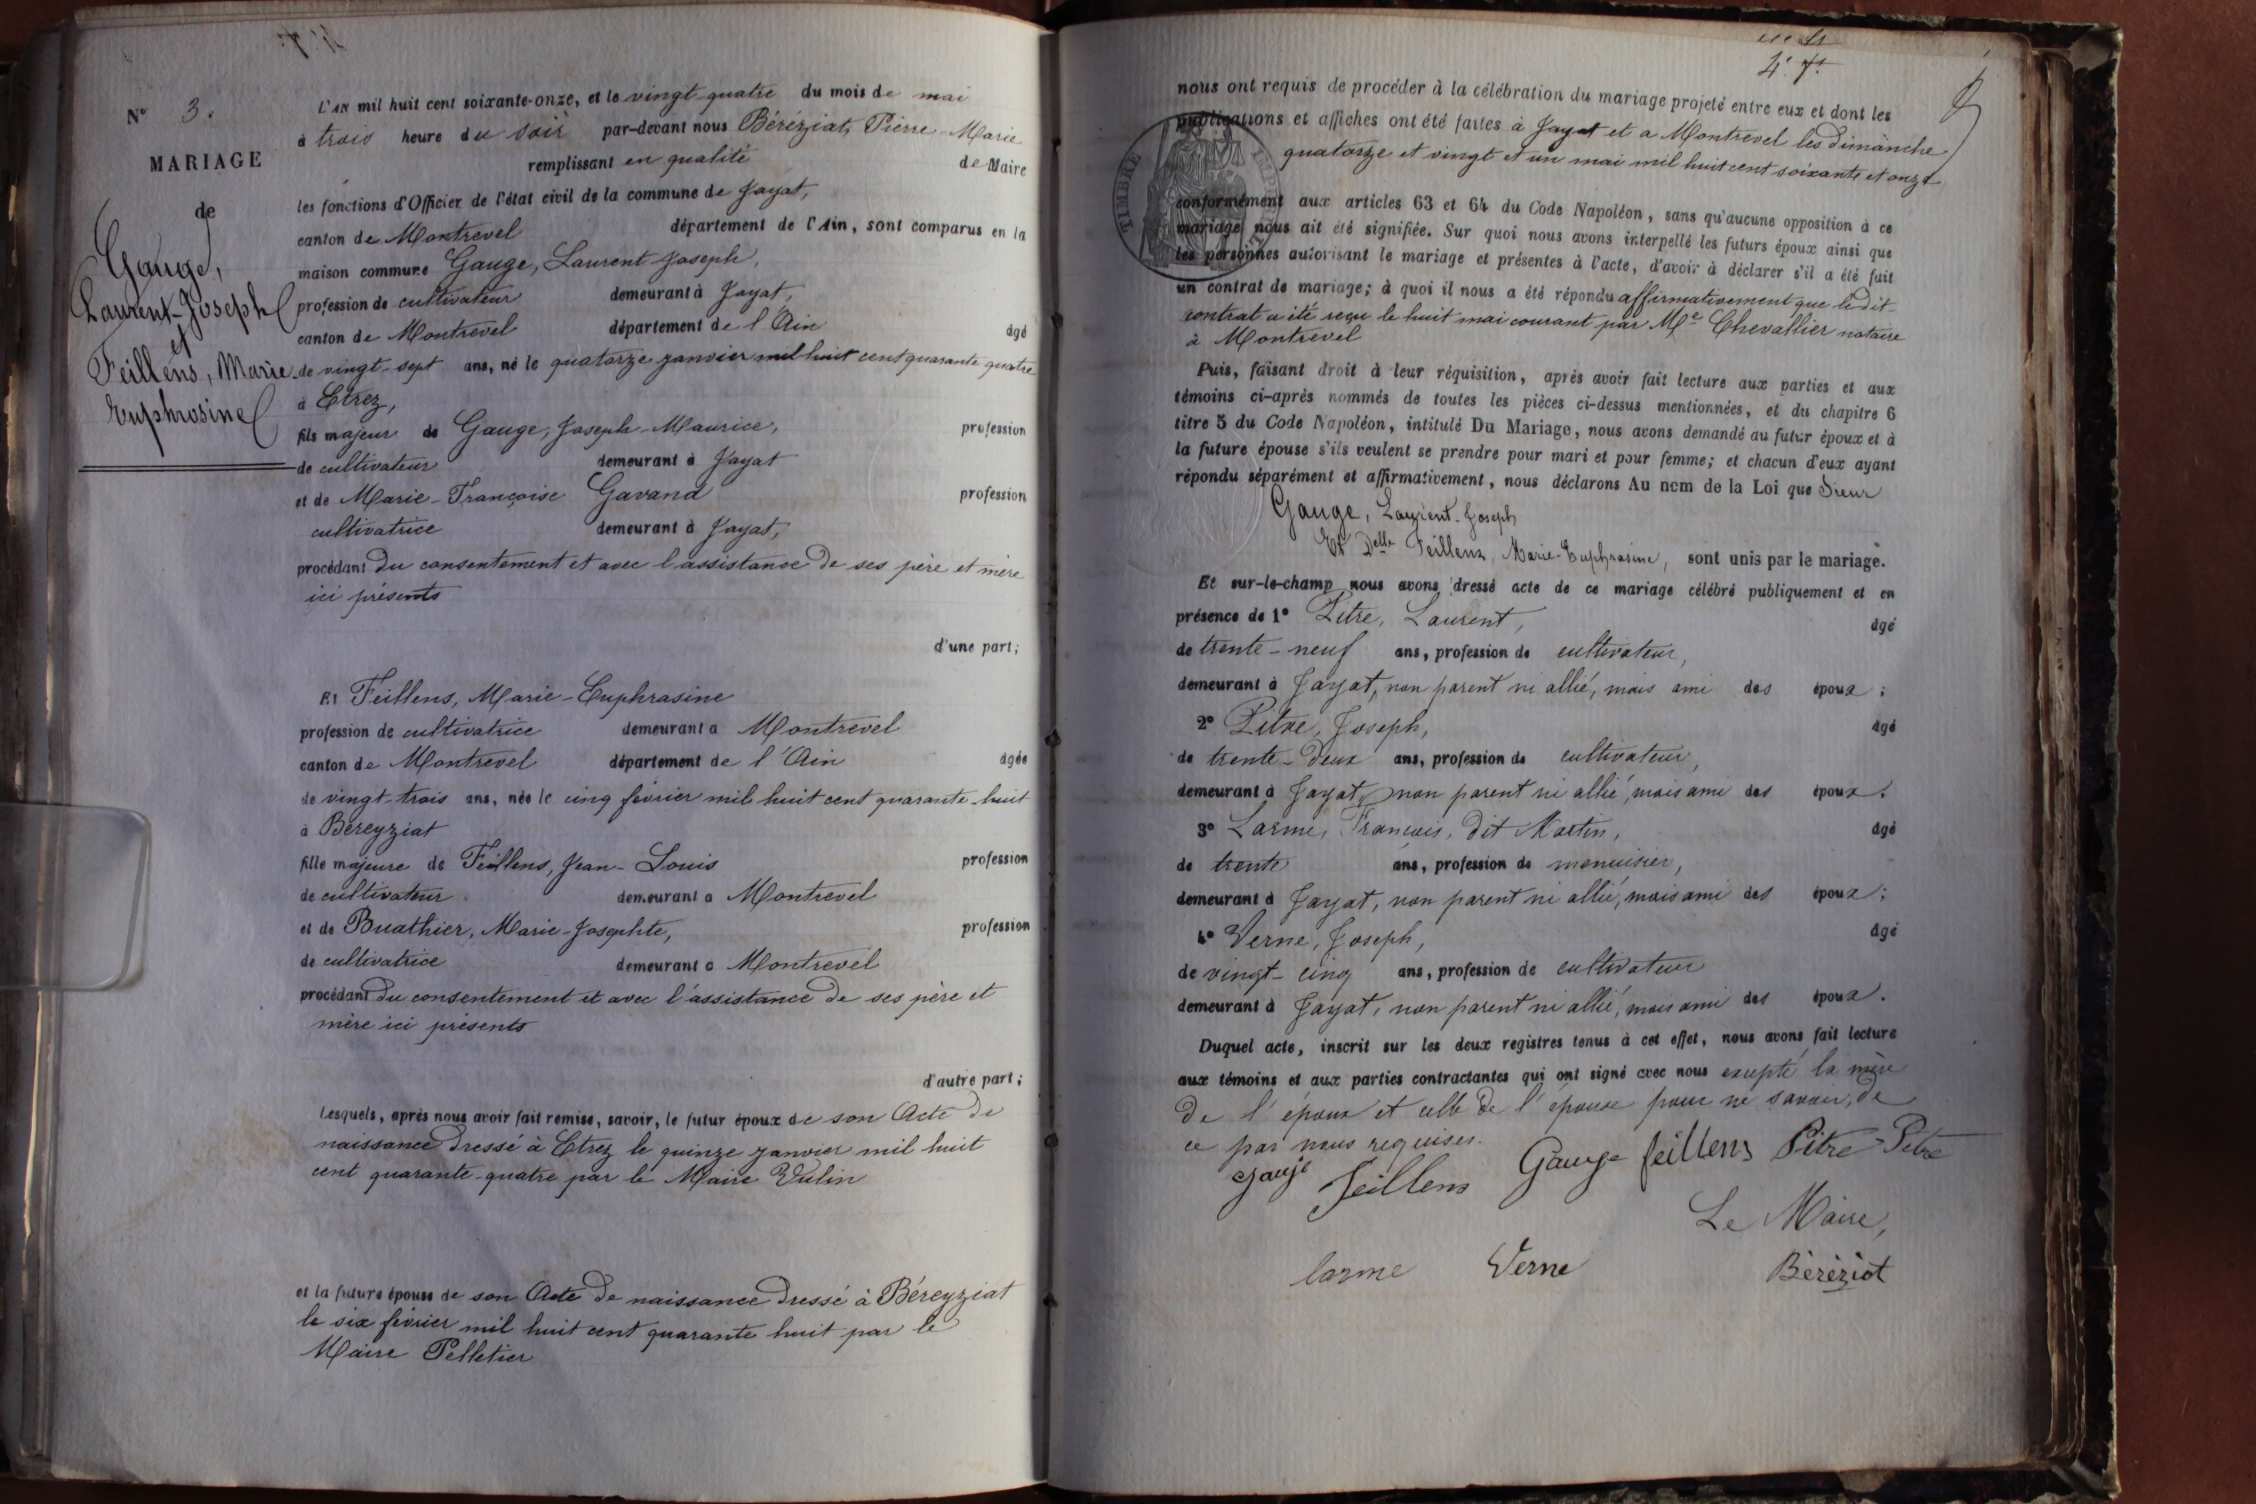 N° 3.
MARIAGE
de
Gauge,
Laurent-Joseph
et
Feillens, Marie
Euphrosine
L'AN mil huit cent soixante-onze, et le vingt-quatre du mois de mai
à trois heure du soir par-devant nous Béréziat, Pierre-Marie
remplissant en qualité de Maire
les fonctions d'Officier de l'état civil de la commune de Jayat,
canton de Montrevel département de l'Ain, sont comparus en la
maison commune Gauge, Laurent-Joseph,
profession de cultivateur demeurant à Jayat,
canton de Montrevel département de l'Ain âgé
de vingt-sept ans, né le quatorze janvier mil huit cent quarante quatre
à Etrez,
fils majeur de Gauge, Joseph-Maurice, profession
de cultivateur demeurant à Jayat
et de Marie-Françoise Gavand profession
cultivatrice demeurant à Jayat,
procédant du consentement et avec l'assistance de ses père et mère
ici présents
d'une part;
Et Feillens, Marie-Euphrasine
profession de cultivatrice demeurant à Montrevel
canton de Montrevel département de l'Ain âgée
de vingt-trois ans, née le cinq février mil huit cent quarante-huit
à Béreyziat
fille majeure de Feillens, Jean-Louis profession
de cultivateur demeurant à Montrevel
et de Buathier, Marie-Josephte, profession
de cultivatrice demeurant à Montrevel
procédant du consentement et avec l'assistance de ses père et
mère ici présents
d'autre part;
Lesquels, après nous avoir fait remise, savoir, le futur époux de son Acte de
naissance dressé à Etrez le quinze janvier mil huit
cent quarante-quatre par le Maire Vulin
et la future épouse de son Acte de naissance dressé à Béreyziat
le six février mil huit cent quarante huit par le
Maire Pelletier
4. 7.
nous ont requis de procéder à la célébration du mariage projeté entre eux et dont les
publications et affiches ont été faites à Jayat et a Montrevel les dimanche
quatorze et vingt et un mai mil huit cent soixante et onze
TIMBRE
conformément aux articles 63 et 64 du Code Napoléon, sans qu'aucune opposition à ce
mariage nous ait été signifiée. Sur quoi nous avons interpellé les futurs époux ainsi que
les personnes autorisant le mariage et présentes à l'acte, d'avoir à déclarer s'il a été fait
un contrat de mariage; à quoi il nous a été répondu affirmativement que le dit
contrat a été reçu le huit mai courant par Me Chevallier notaire
à Montrevel
Puis, faisant droit à leur réquisition, après avoir fait lecture aux parties et aux
témoins ci-après nommés de toutes les pièces ci-dessus mentionnées, et du chapitre 6
titre 5 du Code Napoléon, intitulé Du Mariage, nous avons demandé au futur époux et à
la future épouse s'ils veulent se prendre pour mari et pour femme; et chacun d'eux ayant
répondu séparément et affirmativement, nous déclarons Au nom de la Loi que Sieur
Gauge, Laurient-Joseph
Et Delle Feillens, Marie-Euphrasine, sont unis par le mariage.
Et sur-le-champ nous avons dressé acte de ce mariage célébré publiquement et en
présence de 1° Pitre, Laurent, âgé
de trente-neuf ans, profession de cultivateur,
demeurant à Jayat, non parent ni allié, mais ami des époux;
2° Pitre, Joseph, âgé
de trente-deux ans, profession de cultivateur,
demeurant à Jayat, non parent ni allié, mais ami des époux.
3° Larme, François, dit Martin, âgé
de trente ans, profession de menuisier,
demeurant à Jayat, non parent ni allié, mais ami des époux;
4° Verne, Joseph, âgé
de vingt-cinq ans, profession de cultivateur
demeurant à Jayat, non parent ni allié, mais ami des époux.
Duquel acte, inscrit sur les deux registres tenus à cet effet, nous avons fait lecture
aux témoins et aux parties contractantes qui ont signé avec nous excepté la mère
de l'époux et celle de l'épouse pour ne savoir, de
ce par nous requises.
gauje Feillens Gauge feillens Pitre Pitre
Le Maire,
larme Verne Béréziat